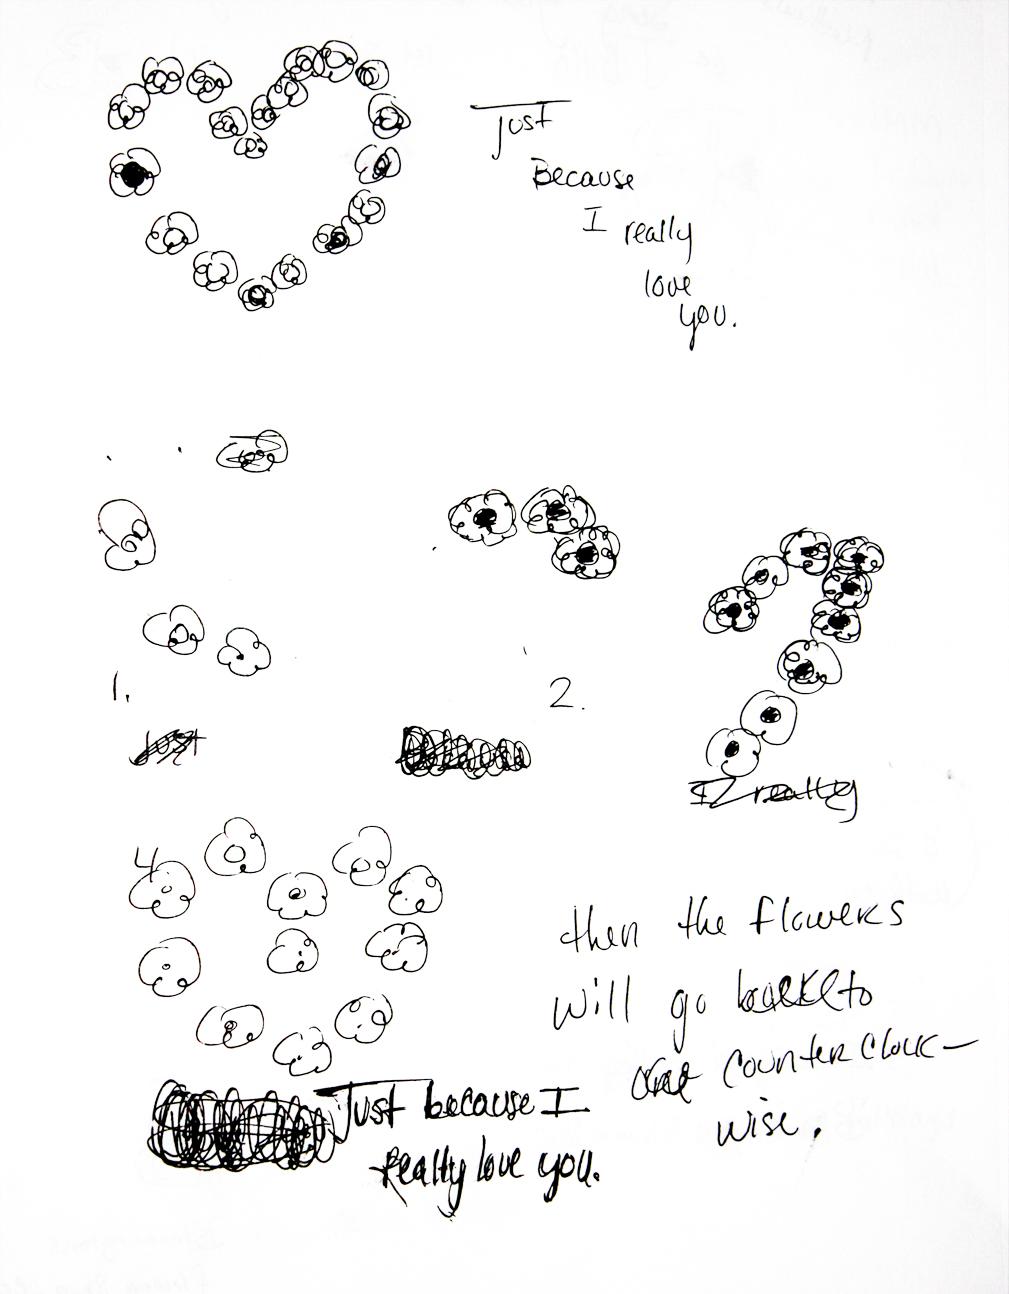 Just
Because
I really
love
you.
1.
2.
Just
I really
4
then the flowers
will go to
counter clock-
wise.
Just because I
really love you.